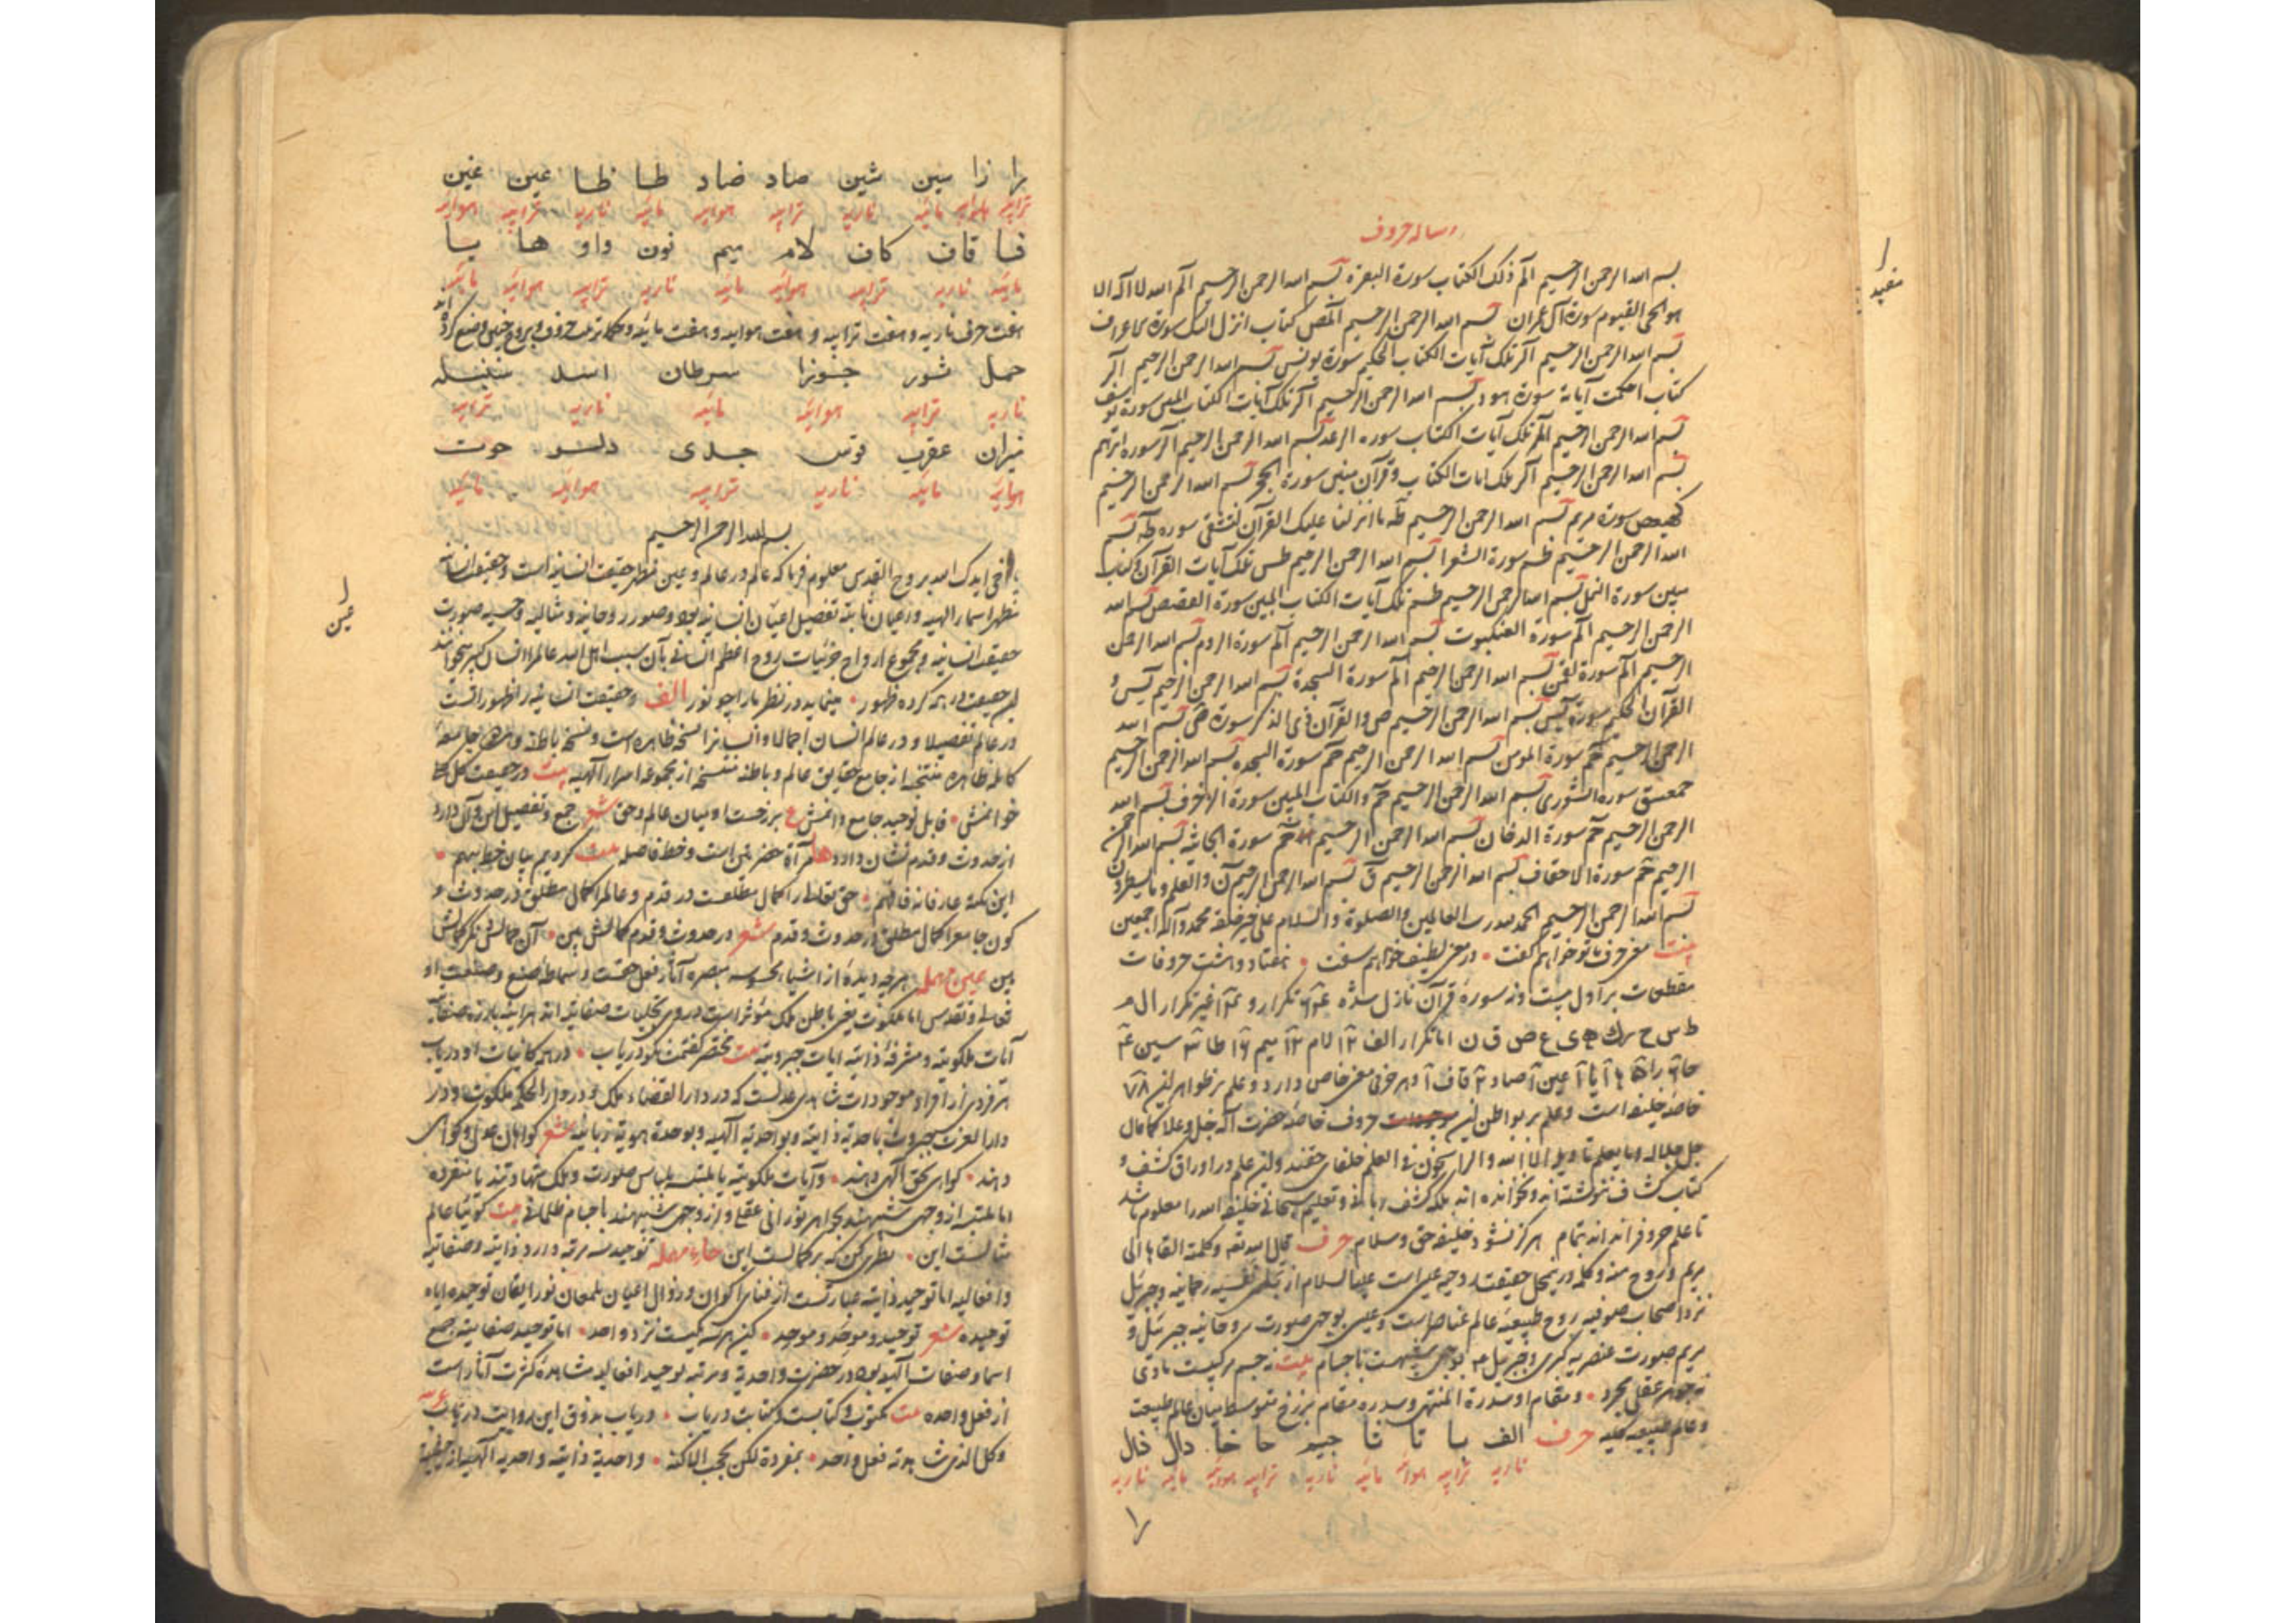 رساله حروف
بسم الله الرحمن الرحیم الم ذلک الکتاب سورة البقرة بسم الله الرحمن الرحیم الم الله لا اله الا
هو الحی القیوم سورة آل عمران بسم الله الرحمن الرحیم المص کتاب انزل الیک سورة الاعراف
بسم الله الرحمن الرحیم الر تلک آیات الکتاب الحکیم سورة یونس بسم الله الرحمن الرحیم الر
کتاب احکمت آیاته سورة هود بسم الله الرحمن الرحیم الر تلک آیات الکتاب المبین سورة یوسف
بسم الله الرحمن الرحیم المر تلک آیات الکتاب سوره الرعد بسم الله الرحمن الرحیم الر سوره ابرهیم
بسم الله الرحمن الرحیم الر تلک ایات الکتاب و قرآن مبین سورة الحجر بسم الله الرحمن الرحیم
کهیعص سورة مریم بسم الله الرحمن الرحیم طه ما انزلنا علیک القرآن لتشقی سوره طه بسم
الله الرحمن الرحیم طسم سورة الشعرا بسم الله الرحمن الرحیم طس تلک آیات القرآن و کتاب
مبین سورة النمل بسم الله الرحمن الرحیم طسم تلک آیات الکتاب المبین سورة القصص بسم الله
الرحمن الرحیم الم سورة العنکبوت بسم الله الرحمن الرحیم الم سورة الروم بسم الله الرحمن
الرحیم الم سورة لقمن بسم الله الرحمن الرحیم الم سورة السجدة بسم الله الرحمن الرحیم یس و
القرآن الحکیم سورة یس بسم الله الرحمن الرحیم ص والقرآن ذی الذکر سورة ص بسم الله
الرحمن الرحیم حم سورة المومن بسم الله الرحمن الرحیم حم سورة السجده بسم الله الرحمن الرحیم
حمعسق سوره الشوری بسم الله الرحمن الرحیم حم والکتاب المبین سورة الزخرف بسم الله
الرحمن الرحیم حم سورة الدخان بسم الله الرحمن الرحیم حم سورة الجاثیه بسم الله الرحمن
الرحیم حم سورة الاحقاف بسم الله الرحمن الرحیم ق بسم الله الرحمن الرحیم ن والقلم وما یسطرون
بسم الله الرحمن الرحیم الحمد لله رب العالمین والصلوة والسلام علی خیر خلقه محمد وآله اجمعین
بیت مغز حرف با تو خواهم گفت در معنی لطیف خواهم سفت هفتاد و هشت حروفات
مقطعات بر اول بیست و نه سورهٔ قرآن نازل شده تکرار و غیر تکرار ال م
ط س ح ر ک ه ی ع ص ق ن اما تکرار الف ۱۳ لام ۱۳ میم طا سین
حا را ها یا عین صاد قاف و هر حرفی معنی خاص دارد و علم بر ظواهر این ۷۸
خاصهٔ خلیفه است و علم بر بواطن این حروف خاصهٔ حضرت اله جل وعلا کما قال
جل جلاله وما یعلم تاویله الا الله والراسخون فی العلم خلفای حقند و این علم در اوراق کشف و
کتاب کشاف ننوشته اند و نخوانده اند بلکه بکشف ربانی و تعلیم سبحانی خلیفه الله را معلوم باشد
تا علم حروف را نداند بتمام هرگز نشود خلیفه حق و سلام حرف قال الله تعه وکلمته القاها الی
مریم وروح منه و کلمه در محل حقیقت روحیه عیسی است علیه السلام از تجلی نفسیه رحمانیه و جبرئیل
نزد اصحاب صوفیه روح طبیعیه عالم عناصر است و عیسی بوجهی صورت روحانیه جبرئیل و
مریم صورت عنصریه کبری و جبرئیل بوجهی مشبهست با جسام بیت نه جسم مرکبست مادی
نه جوهر عقلی مجرد و مقام او سدرة المنتهی و سدره مقام برزخ متوسط میان عالم طبیعت
و عالم طبیعیه کلیه حرف الف با تا ثا جیم حا خا دال ذال
ناریه ترابیه هوائیه مائیه ناریه ترابیه هوائیه مائیه ناریه
را
مفید
را زا سین شین صاد ضاد طا ظا عین غین
ترابیه هوائیه مائیه ناریه ترابیه هوائیه مائیه ناریه ترابیه هوائیه
فا قاف کاف لام میم نون واو ها یا
مائیه ناریه ترابیه هوائیه مائیه ناریه ترابیه هوائیه مائیه
هفت حرف ناریه و هفت ترابیه و هفت هوائیه و هفت مائیه و حکما ترتیب حروف و بروج چنین وضع کرده اند
حمل ثور جوزا سرطان اسد سنبله
ناریه ترابیه هوائیه مائیه ناریه ترابیه
میزان عقرب قوس جدی دلو حوت
هوائیه مائیه ناریه ترابیه هوائیه مائیه
بسم الله الرحمن الرحیم
یا اخی ایدک الله بروح القدس معلوم فرما که عالم در عالم و عین مظهر حقیقت انسانیه است و حقیقت انسانیه
مظهر اسماء الهیه و اعیان ثابته تفصیل اعیان انسانیه بود و صور روحانیه و مثالیه و حسیه صورت
حقیقت انسانیه و مجموع ارواح جزئیات روح اعظم انسانی بآن سبب اهل الله عالم را انسان کبیر خوانند
این حقیقت در همه کرده ظهور مینماید در نظر ما را چو نور الف و حقیقت انسانیه را ظهوراتست
در عالم تفصیلا و در عالم انسان اجمالا و انسان را نسخه ظاهره است و نسخه باطنه
کامله ظاهره منتخبه از جامع حقایق عالم و باطنه منتسخ از مجموعه اسرار الهیه بیت در حقیقت کل ما
خوانمش قابل توحید جامع دانمش ع برزخست او میان عالم و حق شعر جمع و تفصیل این و آن دارد
از حدوث و قدم نشان دارد ها مرآة حضرتین است و خط فاصله بیت کردیم بیان خط بهم
این نکته عارفانه فافهم حق تعالی را کمال مطلقست در قدم و عالم را کمال مطلق در حدوث و
کون جامع را کمال مطلق در حدوث و قدم شعر در حدوث و قدم کمالش بین آن جمالش نگر کمالش
بین عین مهمله هرچه دیدهٔ از اشیاء محسوسه مبصره آثار فعل حقست و صنع و صنعت او
آیات ملکوتیه و مشرفه ذاتیه ایات جبروتیه بیت مختصر گفتمت نکو دریاب در همه کائنات او دریاب
هر فردی از افراد موجودات شاهدی عدلست که در دار القضاء ملک و در دار الحکم ملکوت و در
دار العزت جبروت باحدیة ذاتیه و بواحدیة الهیه و بوحدة هویة ربانیه شعر گواهان عدل گواهی
دهند گواهی بحق الهی دهند و آیات ملکوتیه یا ملتبسه بلباس صورت و ملک متهاوتند یا منفرده
مثالست این نظری کن که بر کمالست این حاء مهمله توحید سه مرتبه دارد ذاتیه و صفاتیه
و افعالیه اما توحید ذاتیه عبارتست از فنای اکوان و زوال اعیان بلمعان نور ایقان توحیده ایاه
توحیده شعر توحید و موحد و موحد این هر سه یکیست نزد واحد اما توحید صفاتیه جمع
اسما و صفات الهیه بود در حضرت واحدیة و مرتبه توحید افعالیه مشاهدهٔ کثرت آثار است
از فعل واحده بیت مکتوب و کتابست و کتابت دریاب دریاب بذوق این روایت دریاب عربیه
وکل الذی شاهدته فعل واحد بمفرده لکن بحجب الاکنه و احدیة ذاتیه و احدیه الهیه از
عین